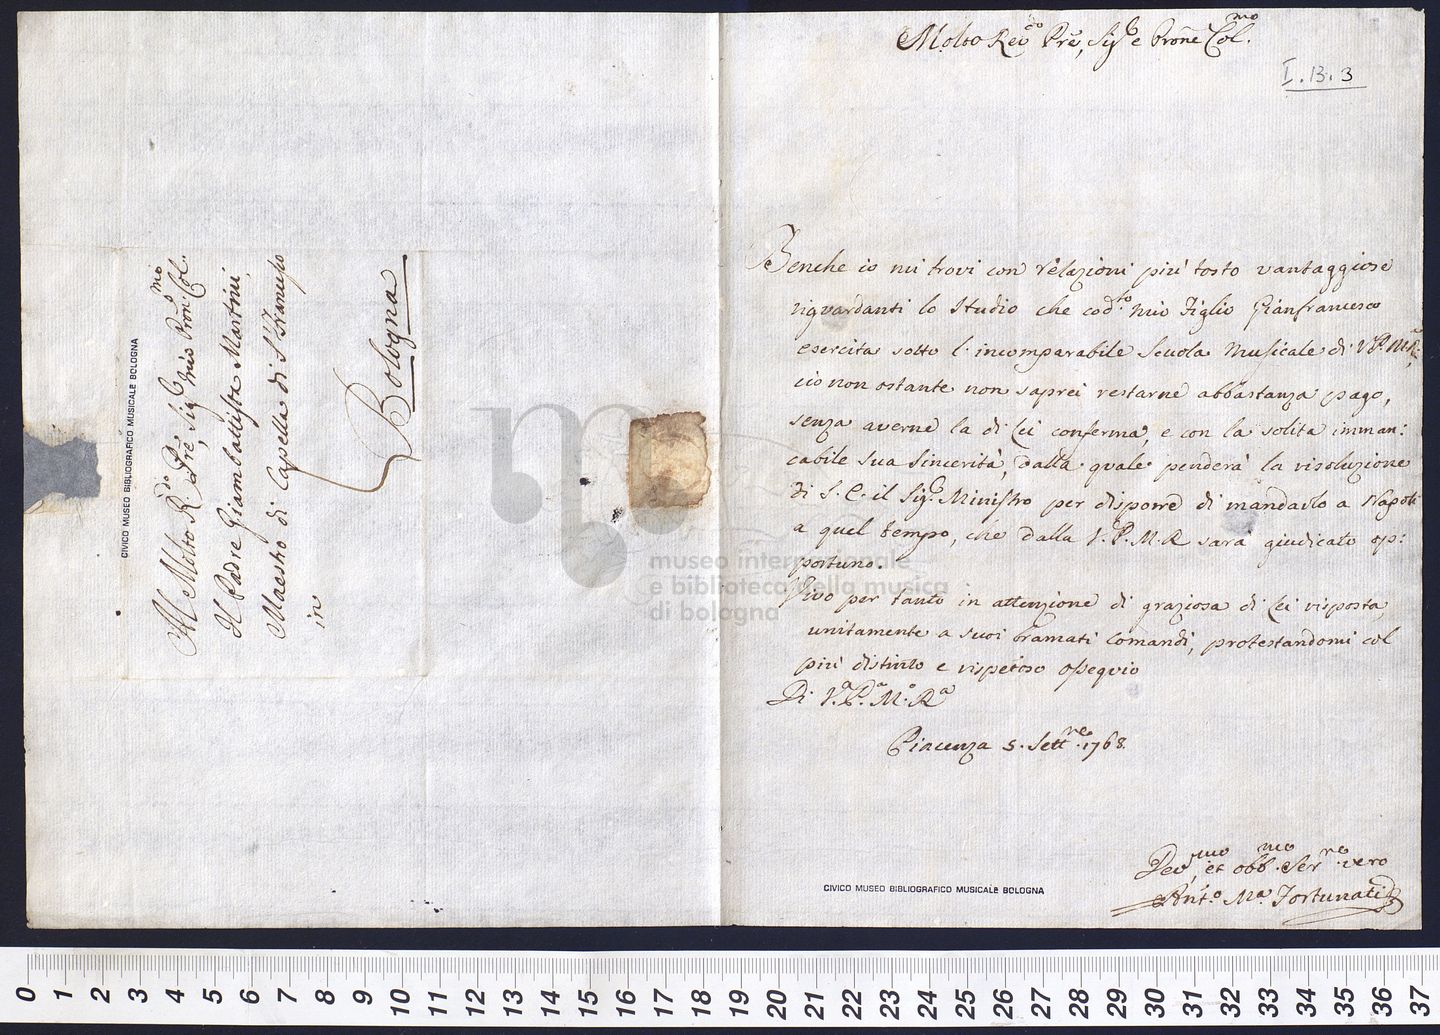 Al Molto R.do Prē, Sig.r mio Pron. Col.mo
Il Padre Giambattista Martini,
Maestro di Capella di S. Francesco
in
Bologna
CIVICO MUSEO BIBLIOGRAFICO MUSICALE BOLOGNA
museo internazionale
e biblioteca della musica
di bologna
Molto Rev.do Prē, Sig.r e Pronē Col.mo
I. B. 3
Benche io mi trovi con relazioni più tosto vantaggiose
riguardanti lo Studio che cod.to mio Figlio Gianfrancesco
esercita sotto l'incomparabile Scuola Musicale di V. P. M. R.
ciò non ostante non saprei restarne abbastanza pago,
senza averne la di Lei conferma, e con la solita imman:
cabile sua Sincerità, dalla quale penderà la risoluzione
di S. E. il Sig.r Ministro per disporre di mandarlo a Napoli
a quel tempo, che dalla V. P. M. R sarà giudicato op:
portuno.
Vivo per tanto in attenzione di graziosa di Lei risposta,
unitamente a suoi bramati Comandi, protestandomi col
più distinto e rispetoso ossequio
Di V.a P.a M.o R.a
Piacenza 5. Sett.re 1768
Dev.mo, et obb.mo Ser.re vero
Ant.o M.a Fortunati
CIVICO MUSEO BIBLIOGRAFICO MUSICALE BOLOGNA
0 1 2 3 4 5 6 7 8 9 10 11 12 13 14 15 16 17 18 19 20 21 22 23 24 25 26 27 28 29 30 31 32 33 34 35 36 37